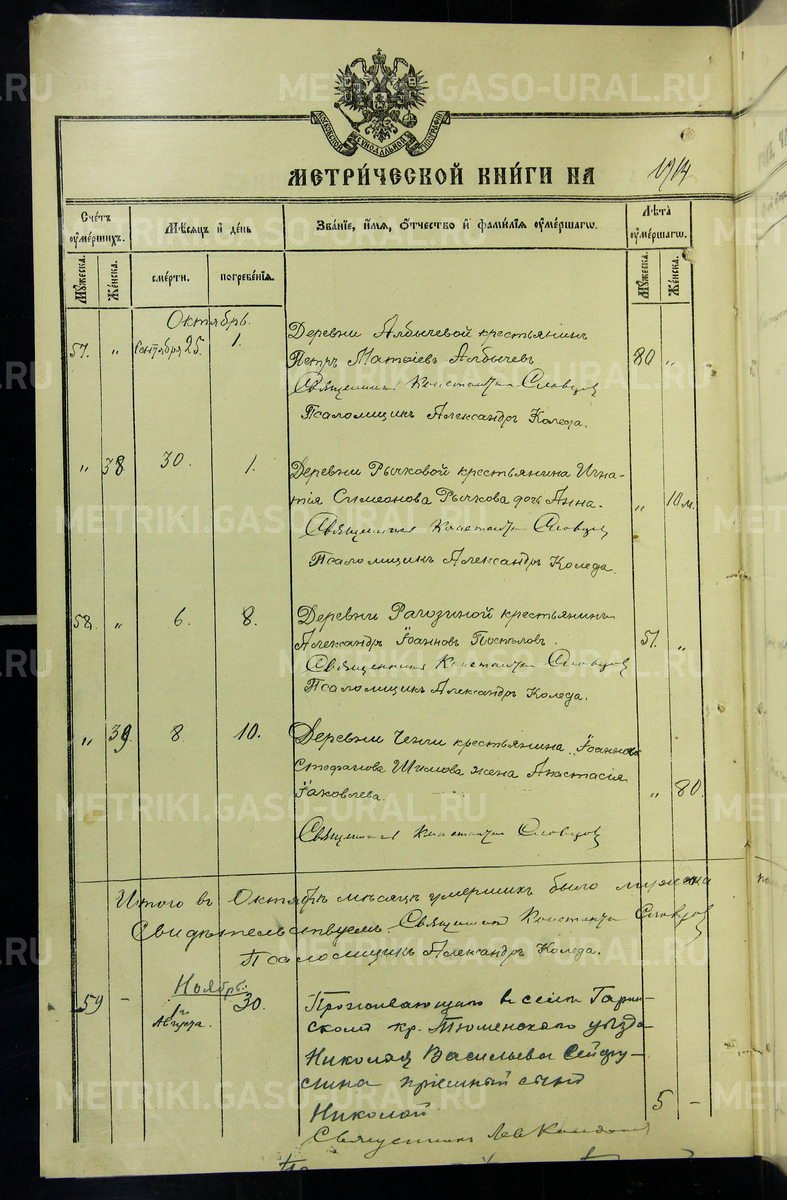 МЕТРИ́ЧЕСКОЙ КНИ́ГИ НА 1914
Сче́тъ оу҆ме́ршихъ.
Мѣ́сяцъ и҆ де́нь
Зва́нїе, и҆́мѧ, ѻ҆́тчество и҆ фами́лїѧ оу҆ме́ршагѡ.
Лѣ́та оу҆ме́ршагѡ.
Мꙋ́жеска.
Же́нска.
сме́рти.
погребе́нїѧ.
Мꙋ́жеска.
Же́нска.
Октябрь.
57. " Сентября 25. 1. Деревни Албычевой крестьянинъ
Петръ Матѳіевъ Албычевъ 80 "
Священникъ Константинъ Словцов
Псаломщикъ Александръ Коледа.
" 38 30. 1. Деревни Рычковой крестьянина Игна-
тія Симеонова Рычкова дочь Анна. " 10 м.
Священникъ Константинъ Словцов
Псаломщикъ Александръ Коледа.
58. " 6. 8. Деревни Рагозиной крестьянинъ
Александръ Іоанновъ Поспѣловъ. 51. "
Священникъ Константинъ Словцов
Псаломщикъ Александръ Коледа.
" 39 8 10. Деревни крестьянина Іоанна
Стефанова Шимова жена Анастасія
Іаковлева. " 80.
Священникъ Константинъ Словцов
Итого въ Октябрѣ мѣсяцѣ умершихъ было
Свидѣтельствуемъ Священникъ Константинъ Словцов
Псаломщикъ Александръ Коледа.
Ноябрь:
59 - 1го Августа. 30. Проживающаго въ селѣ Гарин-
скомъ кр. Тюменскаго уѣзда
Николая Васильева Сейфу-
лина пріемный сынъ
Николай 5 -
Священникъ Лев
METRIKI.GASO-URAL.RU